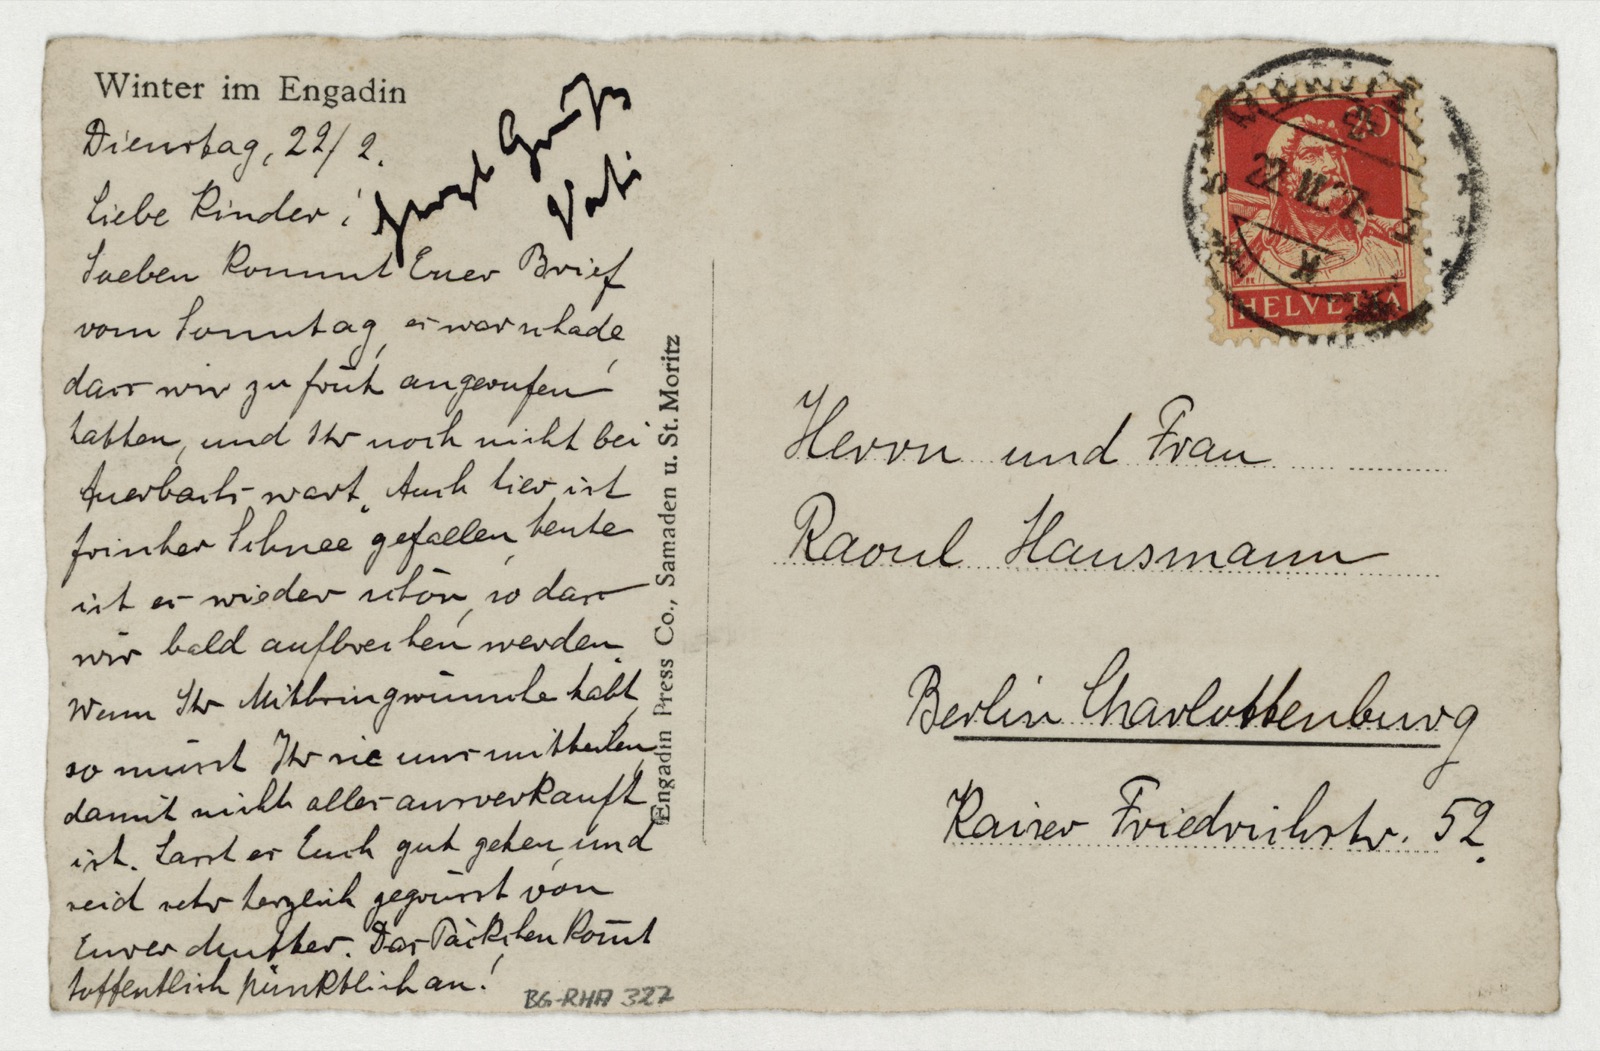 Winter im Engadin
Dienstag, 22/2.
Liebe Kinder!
Soeben kommt Euer Brief
vom Sonntag, es war schade
dass wir zu früh angerufen
hatten, und Ihr noch nicht bei
Auerbachs wart. Auch hier ist
frischer Schnee gefallen, heute
ist es wieder schön, so dass
wir bald aufbrechen werden.
Wenn Ihr Mitbringwünsche habt,
so müsst Ihr sie uns mitteilen,
damit nicht alles ausverkauft
ist. Lasst es Euch gut gehen, und
seid sehr herzlich gegrüsst von
Eurer Mutter. Das Päckchen kom̄t
hoffentlich pünktlich an!
Gruß
Vati
Engadin Press Co., Samaden u. St. Moritz
20
22. II. 27.
HELVETIA
Herrn und Frau
Raoul Hausmann
Berlin Charlottenburg
Kaiser Friedrichstr. 52.
BG-RHA 327